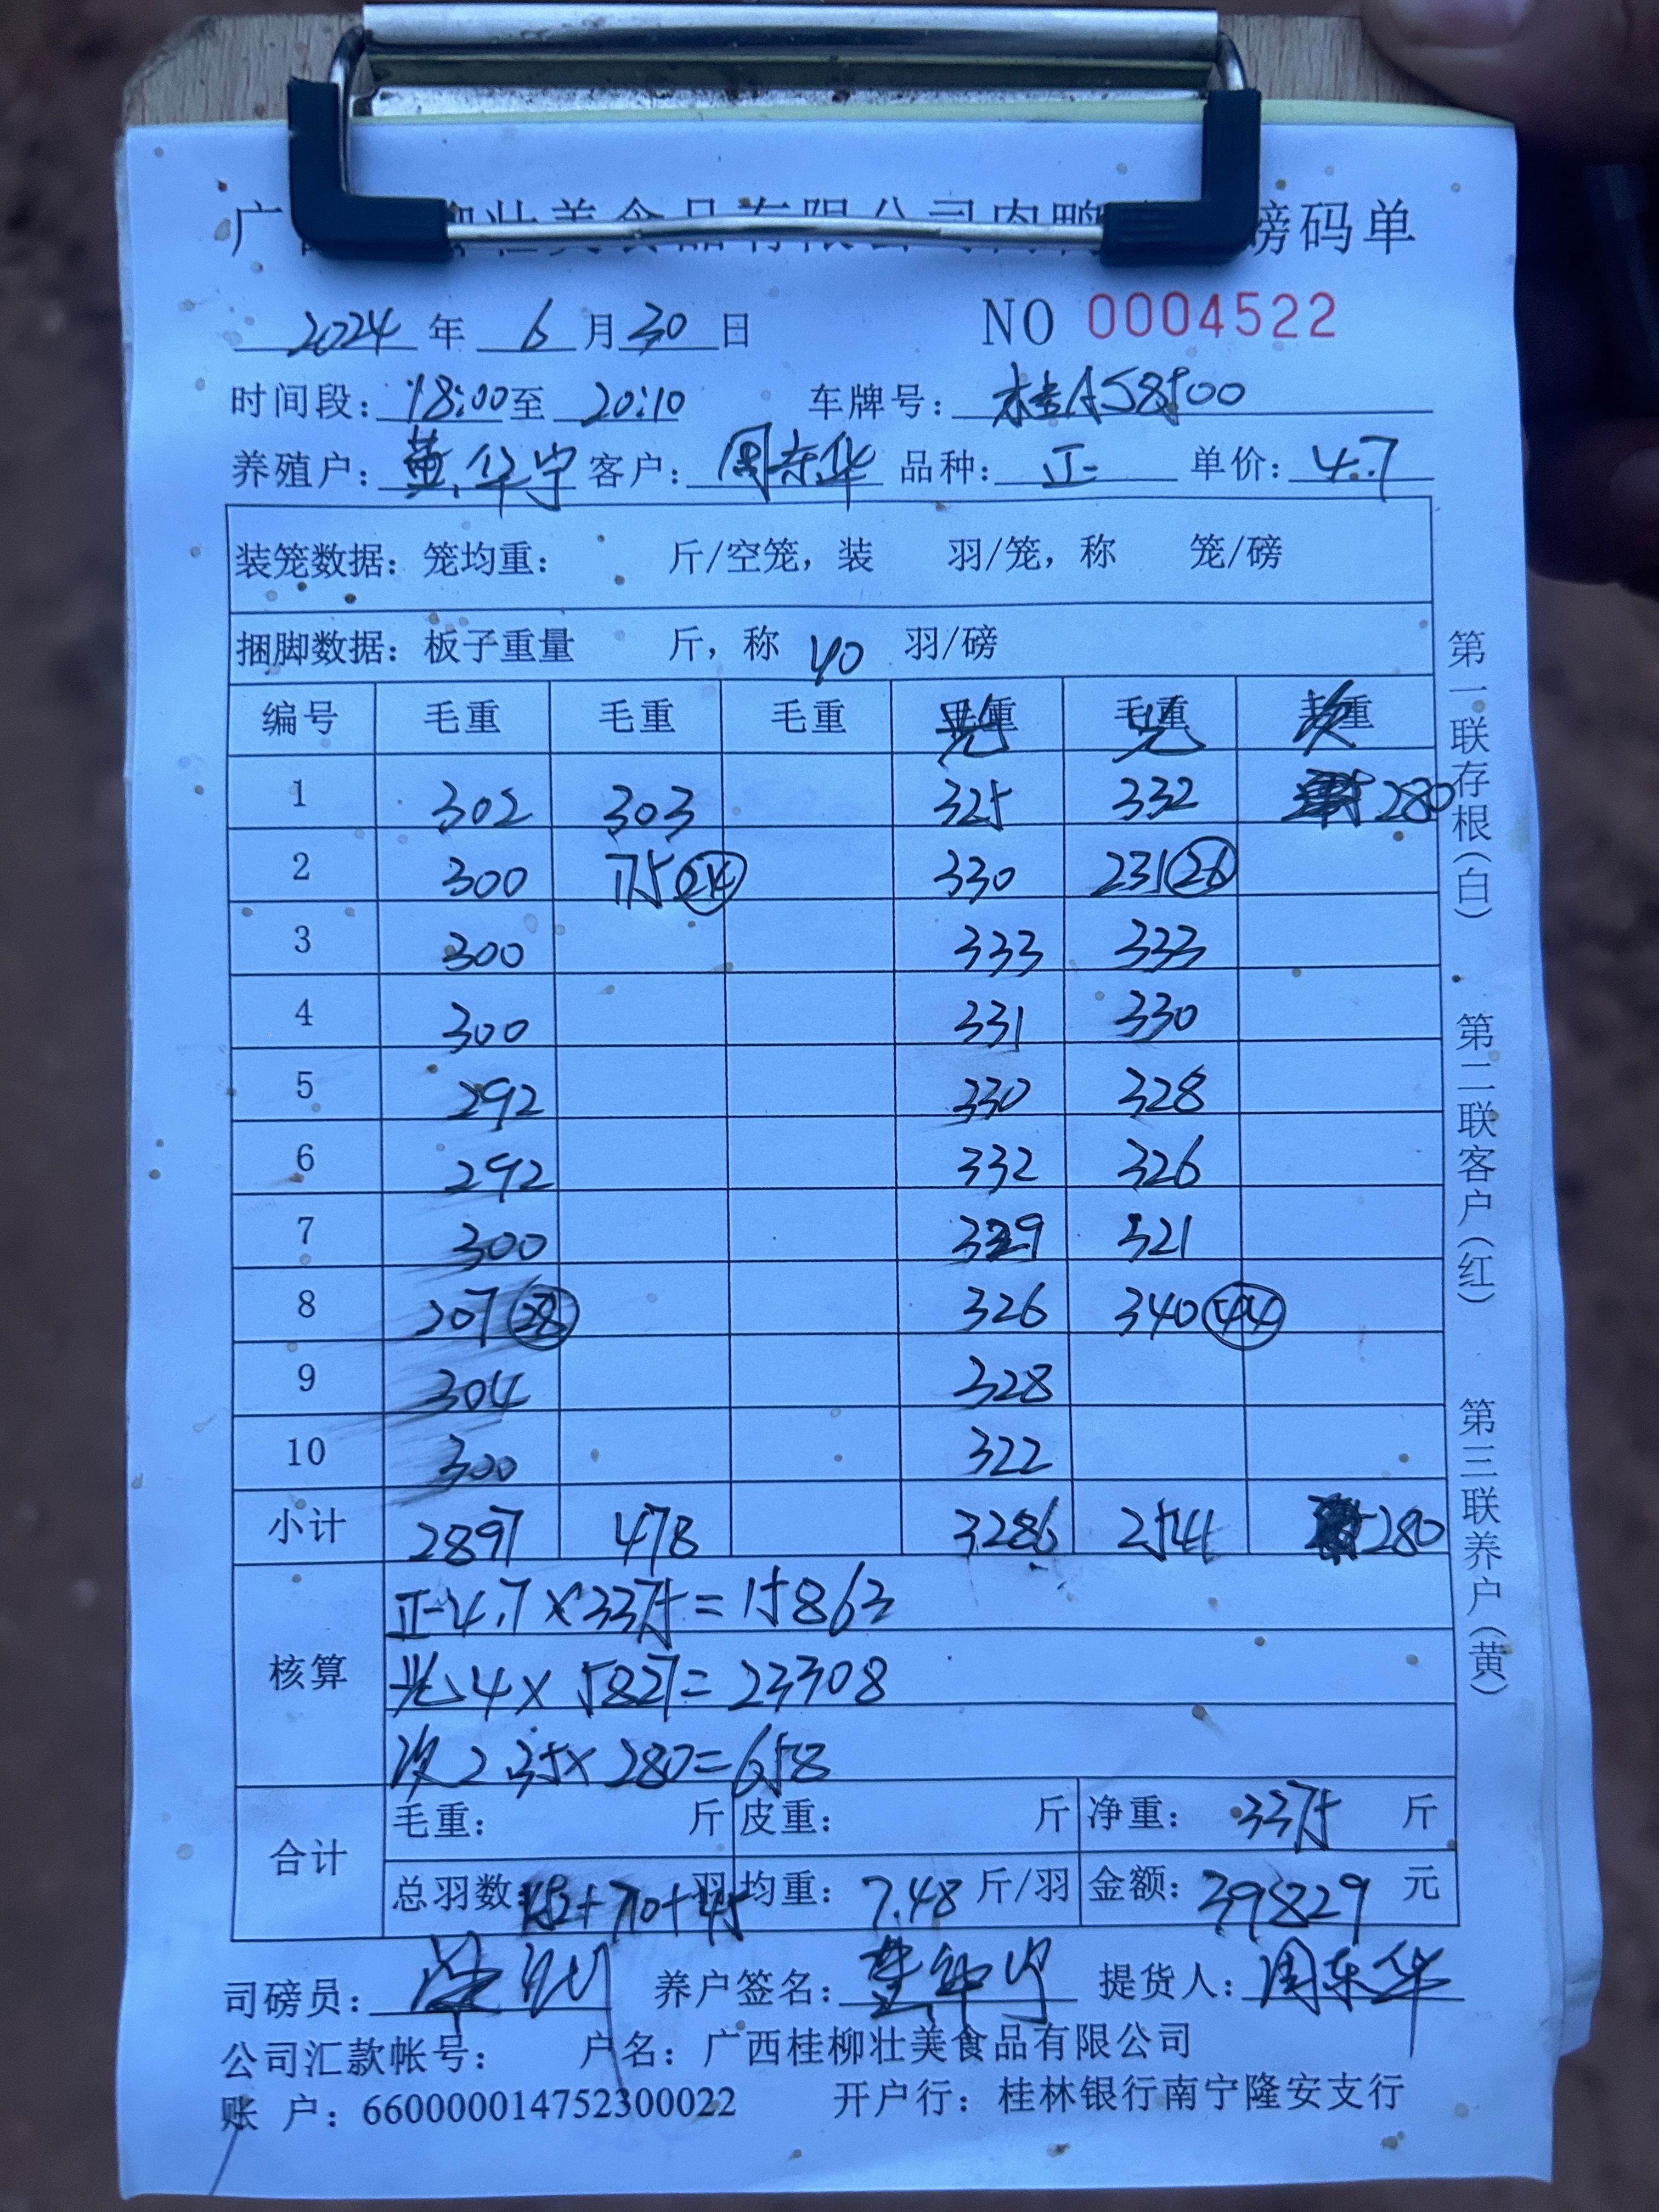 广 壮美食品有限公司肉鸭 磅码单
2024 年 6 月 30 日 NO 0004522
时间段: 18:00 至 20:10 车牌号: 桂A58500
养殖户: 黄华宁 客户: 周东华 品种: 正 单价: 4.7
装笼数据: 笼均重: 斤/空笼, 装 羽/笼, 称 笼/磅
捆脚数据: 板子重量 斤, 称 40 羽/磅
编号 毛重 毛重 毛重 光 光 次
1 302 303 325 332 280
2 300 175 (24) 330 231 (26)
3 300 333 333
4 300 331 330
5 292 330 328
6 292 332 326
7 300 329 321
8 207 (28) 326 340 (44)
9 304 328
10 300 322
小计 2897 478 3286 2541 280
核算
正 4.7×3375=15863
光 4×5827=23308
次 2.35×280=658
合计
毛重: 斤 皮重: 斤 净重: 3375 斤
总羽数: +710+45 羽 均重: 7.48 斤/羽 金额: 39829 元
司磅员: 养户签名: 黄华宁 提货人: 周东华
公司汇款帐号: 户名: 广西桂柳壮美食品有限公司
账 户: 660000014752300022 开户行: 桂林银行南宁隆安支行
第一联存根(白) 第二联客户(红) 第三联养户(黄)